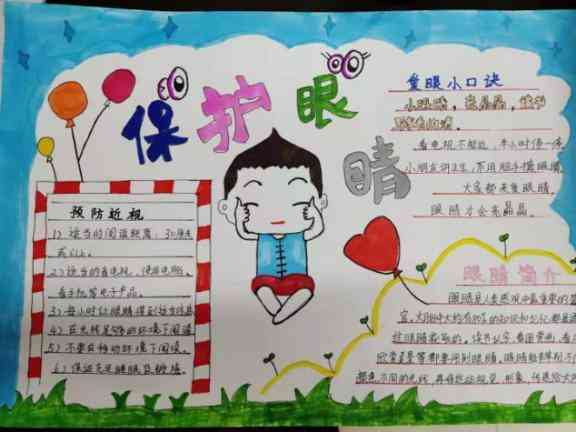 保护眼睛
爱眼小口诀
看电视不能近，半小时停一停，
小朋友讲卫生，不用脏手揉眼睛，
大家都来爱眼睛
眼睛才会亮晶晶。
预防近视
1）适当的阅读距离，30厘米
或以上。
2）适当的看电视，使用电脑，
看手机等电子产品。
3）每小时让眼睛得到
4）在光线足够的环境下阅读。
5）不要在移动环境下阅读。
6）保证充足睡眠
眼睛简介
眼睛是人类感观中最重要的器
官，大脑中大约有80%的知识和记忆都是通
过眼睛获取的，读书认字、看图赏画、看
欣赏美景等都要用到眼睛，眼睛能辨别不
颜色、不同的光线，再将